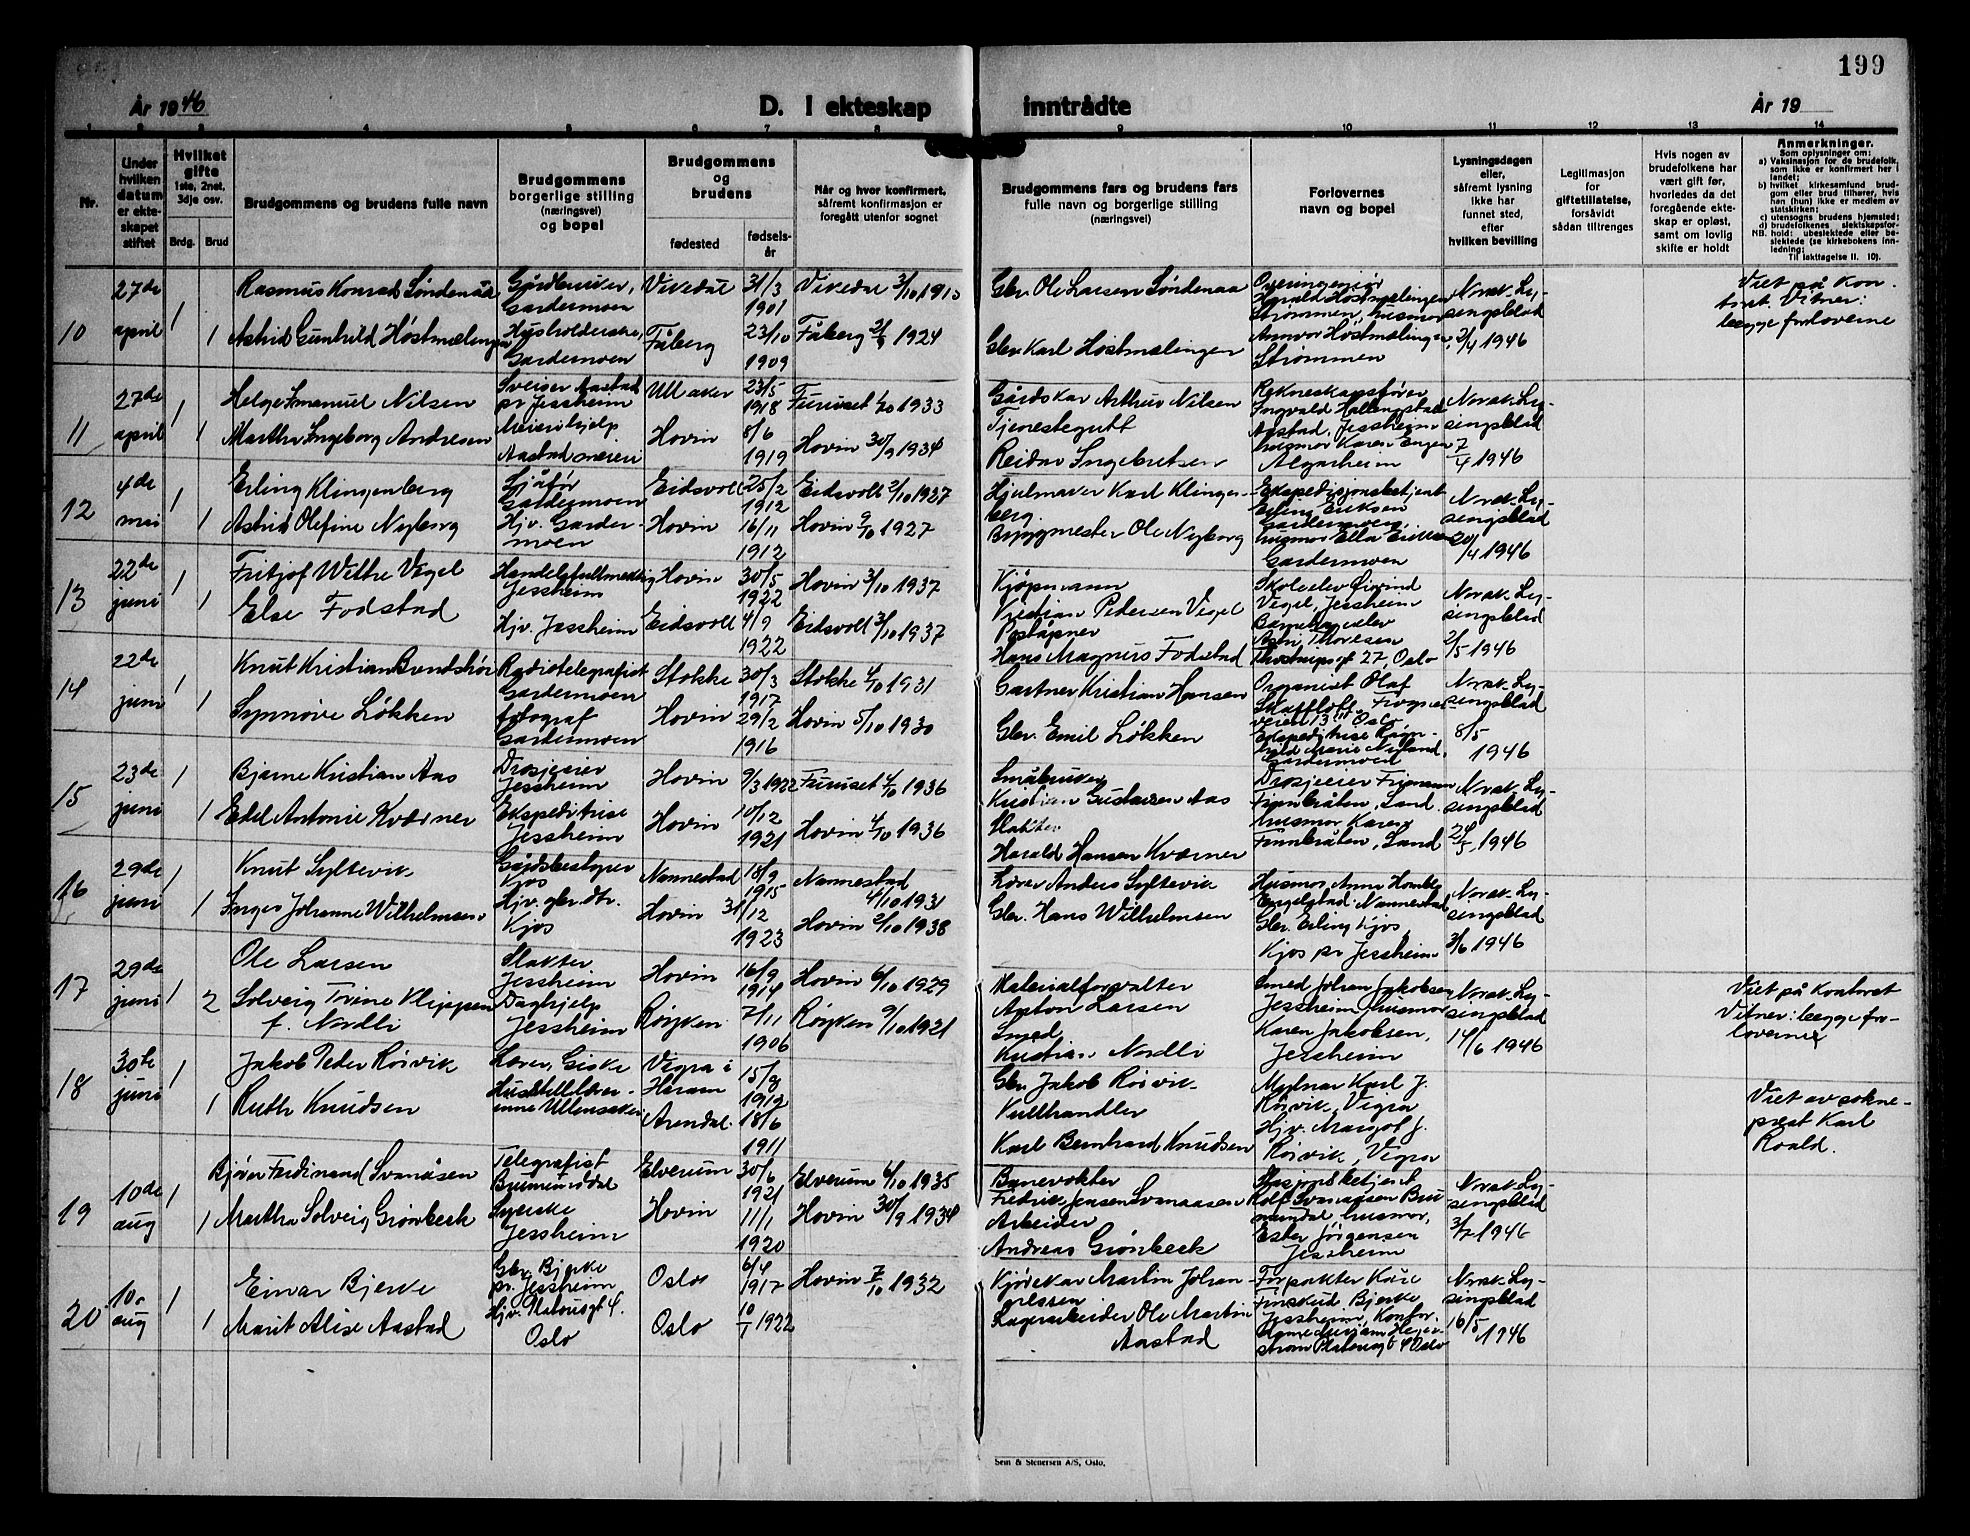 199
År 1946
D. I ekteskap inntrådte
År 19
1 2 3 4 5 6 7 8 9 10 11 12 13 14
Nr.
Under hvilken datum er ekteskapet stiftet
Hvilket gifte
1ste, 2net, 3dje osv.
Brdg. Brud
Brudgommens og brudens fulle navn
Brudgommens borgerlige stilling (næringsvei) og bopel
Brudgommens og brudens
fødested
fødselsår
Når og hvor konfirmert, såfremt konfirmasjon er foregått utenfor sognet
Brudgommens fars og brudens fars fulle navn og borgerlige stilling (næringsvei)
Forlovernes navn og bopel
Lysningsdagen eller, såfremt lysning ikke har funnet sted, efter hvilken bevilling
Legitimasjon for giftetillatelse, forsåvidt sådan tiltrenges
Hvis nogen av brudefolkene har vært gift før, hvorledes da det foregående ekteskap er opløst, samt om lovlig skifte er holdt
Anmerkninger.
Som oplysninger om:
a) Vaksinasjon for de brudefolk, som ikke er konfirmert her i landet;
b) hvilket kirkesamfund brudgom eller brud tilhører, hvis han (hun) ikke er medlem av statskirken;
c) utensogns brudens hjemsted;
d) brudefolkenes slektskapsforhold: ubeslektede eller beslektede (se kirkebokens innledning;
NB.
Til iakttagelse II. 10).
10
27de april
1
Rasmus Konrad Søndenaa
Gårdbruker, Gardermoen
Vikedal
31/3 1901
Vikedal
Gbr. Ole Larsen Søndenaa
Harald Høstmælingen
Strømmen, husmor
Norsk Lysingsblad
2/4 1946
Viet på kontoret Vitner: begge forloverne
1
Astrid Gunhild Høstmælingen
Husholderske, Gardermoen
Fåberg
23/10 1909
Fåberg 1924
Gbr. Karl Høstmælingen
Annvor Høstmælingen
Strømmen
11
27de april
1
Helge Emanuel Nilsen
Sveiser Aastad pr Jessheim
Ullsaker
23/5 1918
Furuset 1/10 1933
Gårdskar Arthur Nilsen
Rekneskapsfører
Ingvald Hallingstad
Aastad, Jessheim
Norsk Lysingsblad
7/4 1946
1
Martha Ingeborg Andresen
Meierihjelp Aastad meieri
Hovin
8/6 1919
Hovin 30/9 1934
Tjenestegutt
Reidar Ingebretsen
husmor Karen Engen
Algarheim
12
4de mai
1
Erling Klingenberg
Sjåfør Gardermoen
Eidsvoll
25/2 1912
Eidsvoll 2/10 1927
Hjulmaker Karl Klingenberg
Ekspedisjonsbetjent
Erling Eriksen
Gardermoen,
Norsk Lysingsblad
20/4 1946
1
Astrid Olefine Nyborg
Hjv. Gardermoen
Hovin
16/11 1912
Hovin 9/10 1927
Byggmester Ole Nyborg
husmor Ella Eriksen
Gardermoen
13
22de juni
1
Fritjof Withe Vigel
Handelsfullmektig Jessheim
Hovin
30/5 1922
Hovin 3/10 1937
Kjøpmann
Kristian Pedersen Vigel
Skoleelev Øivind
Vigel, Jessheim
Norsk Lysingsblad
2/5 1946
1
Else Fodstad
Hjv. Jessheim
Eidsvoll
4/9 1922
Eidsvoll 3/10 1937
Poståpner
Hans Magnus Fodstad
Astri Thoresen
27, Oslo
14
22de juni
1
Knut Kristian Bundshør
Radiotelegrafist Gardermoen
Stokke
30/3 1917
Stokke 4/10 1931
Gartner Kristian Hansen
Organist Olaf
Skaftloft, Frognerveien 13 Oslo
Norsk Lysingsblad
8/5 1946
1
Synnøve Løkken
fotograf Gardermoen
Hovin
29/2 1916
Hovin 5/10 1930
Gbr. Emil Løkken
Ekspeditrise Ragnhild Marie Nyland,
Gardermoen
15
23de juni
1
Bjarne Kristian Aas
Drosjeeier Jessheim
Hovin
9/3 1922
Furuset 4/10 1936
Småbruker
Kristian Gustavsen Aas
Drosjeeier Frimann
Finnbråten, Sand.
Norsk Lysingsblad
24/5 1946
1
Edel Antonie Kværner
Ekspeditrise Jessheim
Hovin
10/12 1921
Hovin 4/10 1936
Slakter
Harald Hansen Kværner
husmor Karen
Finnbråten, Sand
16
29de juni
1
Knut Syltevik
Gårdsbestyrer Kjos
Nannestad
18/9 1915
Nannestad 4/10 1931
Lærer Anders Syltevik
Husmor Anna Homble
Engelstad Nannestad
Norsk Lysingsblad
3/6 1946
1
Inger Johanne Wilhelmsen
Hjv. gbr. dtr. Kjos
Hovin
31/12 1923
Hovin 2/10 1938
Gbr. Hans Wilhelmsen
Gbr. Erling Kjos,
Kjos pr Jessheim
17
29de juni
1
Ole Larsen
Slakter Jessheim
Hovin
16/9 1914
Hovin 6/10 1929
Materialforvalter
Anton Larsen
Smed Johan Jakobsen
Jessheim, husmor
Norsk Lysingsblad
14/6 1946
Viet på Kontoret Vitner: begge forloverne
2
Solveig Trine Klippen f. Nordli
Daghjelp Jessheim
Røyken
7/11 1906
Røyken 9/10 1921
Smed
Kristian Nordli
Karen Jakobsen,
Jessheim
18
30te juni
1
Jakob Peder Rörvik
Lærer, Giske
Vigra i Haram
15/8 1912
Gbr. Jakob Rörvik
Mylnar Karl J.
Rörvik, Vigra
Viet av sokneprest Karl Roald.
1
Ruth Knudsen
Husstellærerinne Ullensaker
Arendal
18/6 1911
Kullhandler
Karl Bernhard Knudsen
Hjv. Margot J.
Rörvik, Vigra
19
10de aug
1
Bjørn Ferdinand Svanåsen
Telegrafist Brumunddal
Elverum
30/6 1921
Elverum 6/10 1935
Banevokter
Fredrik Jensen Svanaasen
Rolf Svanaasen Brumundal husmor,
Norsk Lysingsblad
3/7 1946
1
Martha Solveig Grönbeck
Syerske Jessheim
Hovin
11/1 1920
Hovin 30/9 1934
Arbeider
Andreas Grönbeck
Ester Jørgensen
Jessheim
20
10. aug
1
Einar Bjerke
Gbr. Bjerke pr. Jessheim
Oslo
6/4 1917
Hovin 7/10 1932
Kjørekar Martin Johan
Forpakter Kåre
Finskud Bjerke
Jessheim,
Norsk Lysingsblad
16/5 1946
1
Marit Alise Aastad
Hjv. Platousgt 4. Oslo
Oslo
10/1 1922
Lagerarbeider Ole Martin
Aastad
Platousgt 4 Oslo
Sem & Stenersen A/S, Oslo.